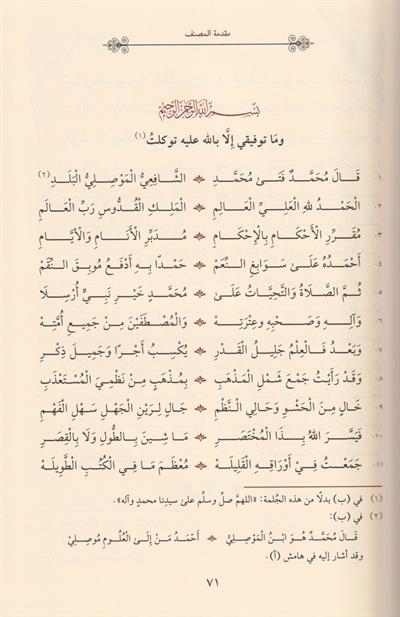 مقدمة المصنف
بِسْمِ اللَّهِ الرَّحْمَنِ الرَّحِيمِ
ومَا توفيقي إلَّا بالله عليه توكلتُ (١)
١. قَالَ مُحَمَّدٌ فَتَىٰ مُحَمَّدِ الشَّافِعِيُّ الْمَوْصِلِيُّ الْبَلَدِ (٢)
٢. الْحَمْدُ للهِ الْعَلِيِّ الْعَالِمِ الْمَلِكِ الْقُدُّوسِ رَبِّ الْعَالَمِ
٣. مُقَرِّرِ الْأَحْكَامِ بِالْإِحْكَامِ مُدَبِّرِ الْأَنَامِ وَالْأَيَّامِ
٤. أَحْمَدُهُ عَلَىٰ سَوَابِغِ النِّعَمْ حَمْدًا بِهِ أَدْفَعُ مُوبِقَ النِّقَمْ
٥. ثُمَّ الصَّلَاةُ وَالتَّحِيَّاتُ عَلَىٰ مُحَمَّدٍ خَيْرِ نَبِيٍّ أُرْسِلَا
٦. وَآلِهِ وَصَحْبِهِ وعِتْرَتِهْ وَالْمُصْطَفَيْنَ مِنْ جَمِيعِ أُمَّتِهْ
٧. وَبَعْدُ فَالْعِلْمُ جَلِيلُ الْقَدْرِ يُكْسِبُ أَجْرًا وَجَمِيلَ ذِكْرِ
٨. وَقَدْ رَأَيْتُ جَمْعَ شَمْلِ الْمَذْهَبِ بِمُذْهَبٍ مِنْ نَظْمِيَ الْمُسْتَعْذَبِ
٩. خَالٍ مِنَ الْحَشْوِ وَحَالِي النَّظْمِ جَالٍ لِرَيْنِ الْجَهْلِ سَهْلِ الْفَهْمِ
١٠. فَيَسَّرَ اللهُ بِذَا الْمُخْتَصَرِ مَا شِينَ بِالطُّولِ وَلَا بِالْقِصَرِ
١١. جَمَعْتُ فِيْ أَوْرَاقِهِ الْقَلِيلَهْ مُعْظَمَ مَا فِي الْكُتْبِ الطَّوِيلَهْ
(١) في (ب) بدلًا من هذه الجُملة: «اللهمَّ صلِّ وسلِّم علىٰ سيدِنا محمدٍ وآله».
(٢) في (ب):
قَالَ مُحَمَّدٌ هُوَ ابْنُ الْمَوْصِلِيْ أَحْمَدُ مَنْ إِلَى الْعُلُومِ مُوصِلِيْ
وقد أشار إليه في هامش (أ).
٧١